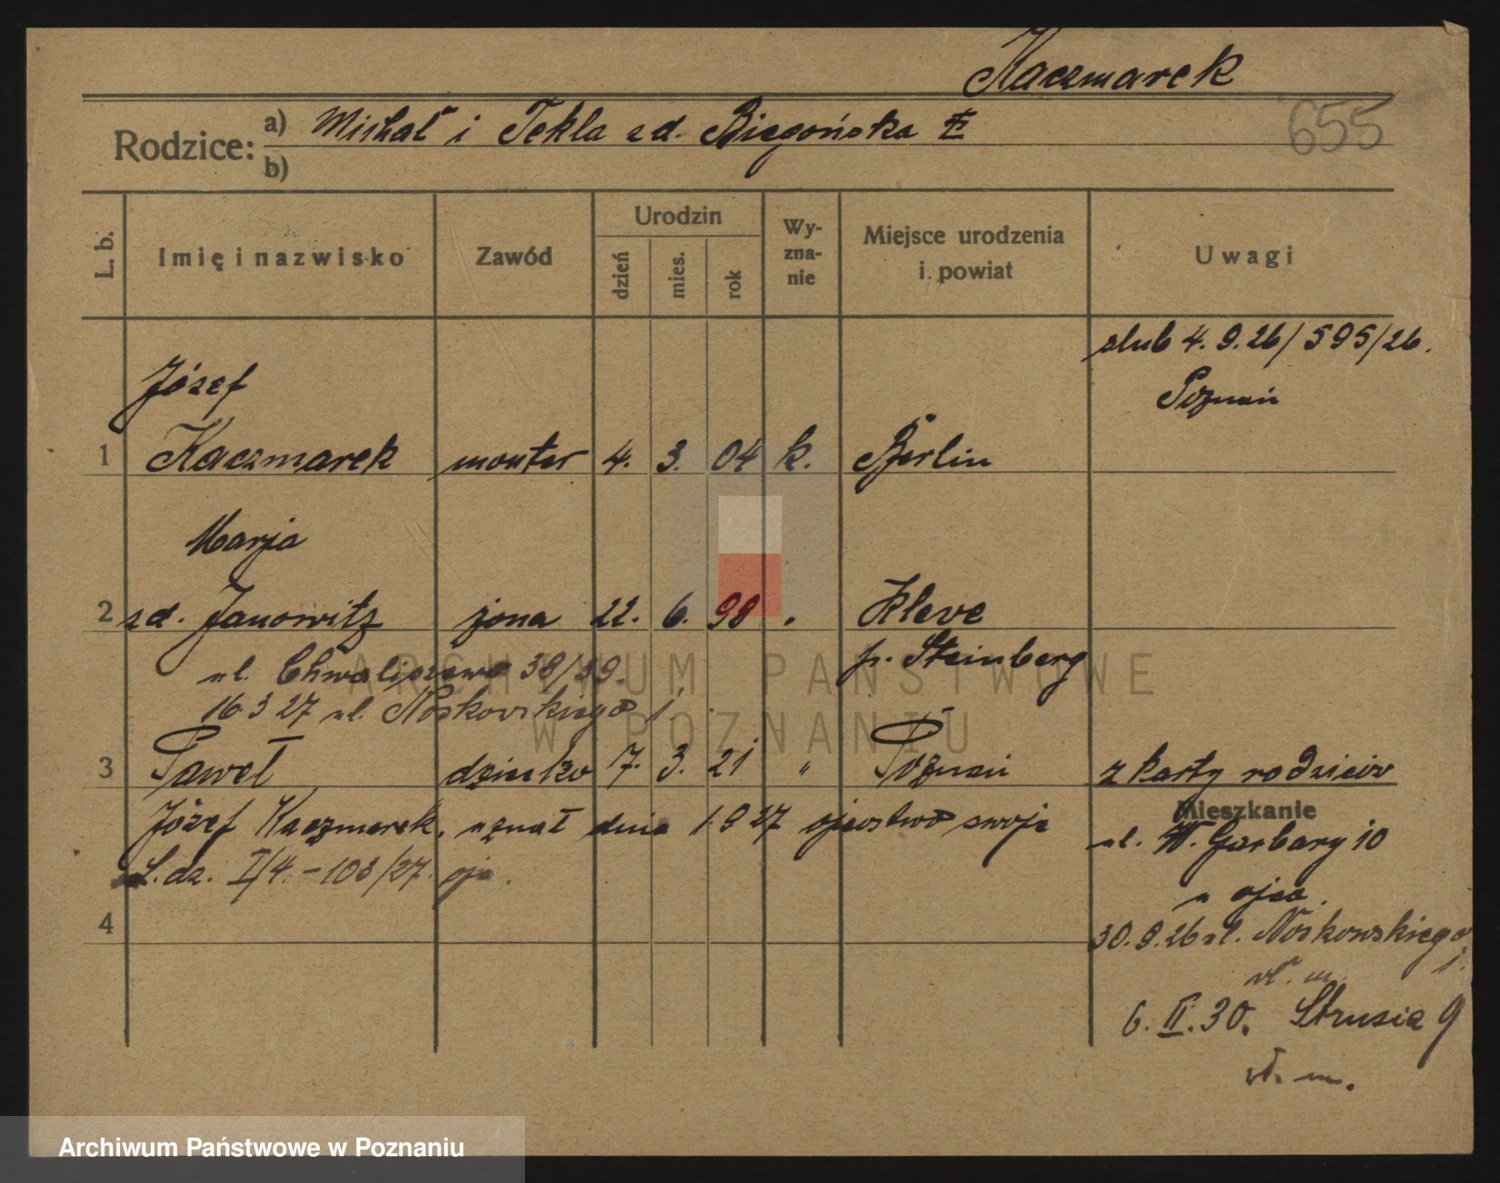 Kaczmarek
655
Rodzice: a) Michał i Tekla zd. Biegońska
b)
L. b. Imię i nazwisko Zawód Urodzin dzień mies. rok Wy-zna-nie Miejsce urodzenia i powiat Uwagi
ślub 4. 9. 26/595/26.
Poznań
Józef
1 Kaczmarek monter 4. 3. 04 k. Berlin
Marja
2 zd. Janowitz żona 22. 6. 98 " Kleve
p. Steinberg
ul. Chwaliszewo 38/39.
16 3 27 ul. Noskowskiego 1
3 Paweł dziecko 7. 3. 21 " Poznań z karty rodziców
Mieszkanie
Józef Kaczmarek, uznał dnia 1 9 27 ojcostwo swoje
ul. W. Garbary 10
L. dz. I/4. - 103/27.
u ojca.
4
30. 9. 26 ul. Noskowskiego 1.
wł. m.
6. II. 30. Strusia 9
wł. m.
ARCHIWUM PAŃSTWOWE
W POZNANIU
Archiwum Państwowe w Poznaniu